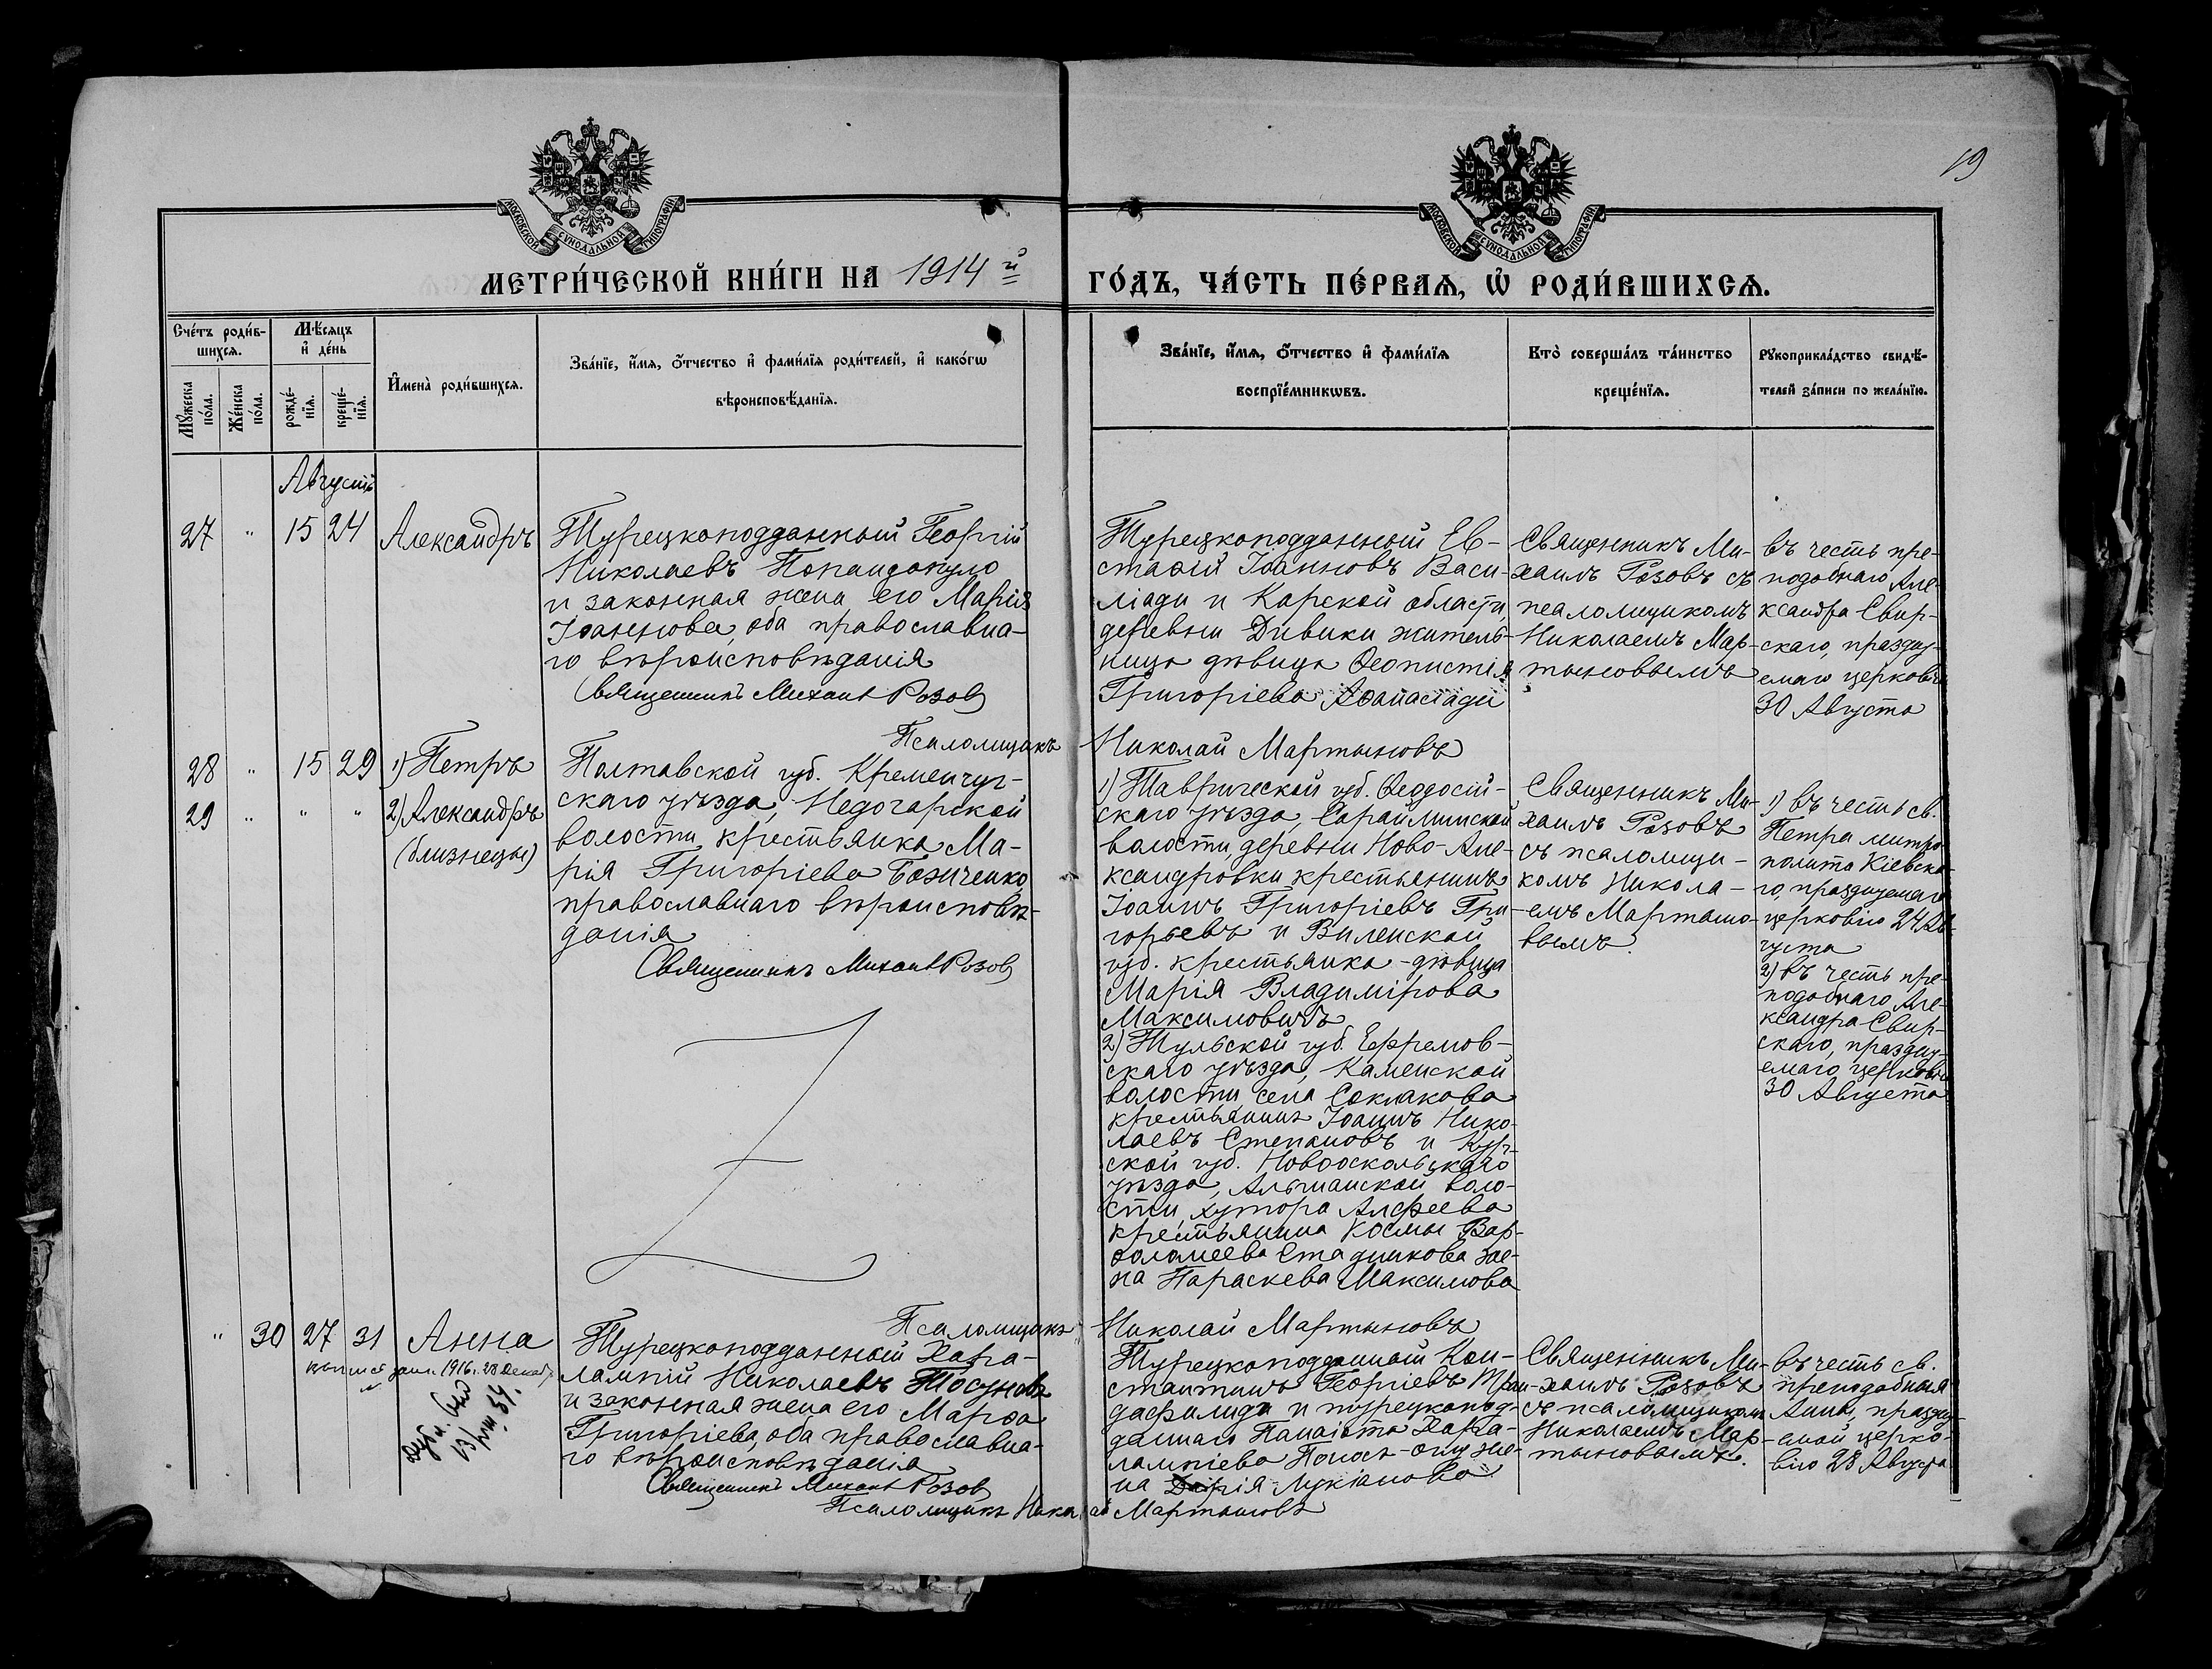 19
МОСКОВСКОЙ СУНОДАЛЬНОЙ ТИПОГРАФІИ
МОСКОВСКОЙ СУНОДАЛЬНОЙ ТИПОГРАФІИ
МЕТРИ́ЧЕСКОЙ КНИ́ГИ НА 1914 й
ГО́ДЪ, ЧА́СТЬ ПЕ́РВАЯ, Ѡ҆ РОДИ́ВШИХСЯ.
Сче́тъ роди́в-
шихся.
Мѣ́сяцъ
и҆ де́нь
Мꙋ́жеска
по́ла.
Же́нска
по́ла.
рожде́-
нїя.
креще́-
нїя.
И҆мена̀ роди́вшихся.
Зва́нїе, и҆́мя, ѻ҆́тчество и҆ фами́лїя роди́телей, и҆ како́гѡ
вѣроисповѣ́данїя.
Зва́нїе, и҆́мя, ѻ҆́тчество и҆ фами́лїя
воспрїе́мникѡвъ.
Кто̀ соверша́лъ та́инство
креще́нїя.
Рꙋкоприкла́дство свидѣ́-
телей за́писи по жела́нїю.
Августъ
27 " 15 24 Александръ
Турецкоподданный Георгій
Николаевъ Попандопуло
и законная жена его Марія
Іоаннова, оба православна-
го вѣроисповѣданія
Священникъ Михаил Розов
Турецкоподданный Ев-
стаѳій Іоанновъ Васи-
ліади и Карской области,
деревни Дивики житель-
ница дѣвица Ѳеопистія
Григоріева Аѳанасіади
Священникъ Ми-
хаилъ Розовъ съ
псаломщикомъ
Николаемъ Мар-
тыновымъ
въ честь пре-
подобнаго Але-
ксандра Свир-
скаго, праздну-
емаго церковію
30 Августа
Псаломщикъ Николай Мартыновъ
28 " 15 29 1) Петръ
29 " " " 2) Александръ
(близнецы)
Полтавской губ. Кременчуг-
скаго уѣзда, Недогарской
волости крестьянка Ма-
рія Григоріева Божченко
православнаго вѣроисповѣ-
данія
Священникъ Михаил Розов
1) Таврической губ. Ѳеодосій-
скаго уѣзда, Сарайминской
волости, деревни Ново-Але-
ксандровки крестьянинъ
Іоаннъ Григоріевъ Гри-
горьевъ и Виленской
губ. крестьянка - дѣвица
Марія Владимірова
Максимовичъ
2) Тульской губ. Ефремов-
скаго уѣзда, Каменской
волости села Соклакова
крестьянинъ Іоаннъ Нико-
лаевъ Степановъ и Кур-
ской губ. Новооскольскаго
уѣзда, Альшанской воло-
сти, хутора Алфеева
крестьянина Космы Вар-
ѳоломеева Стадникова же-
на Параскева Максимова
Священникъ Ми-
хаилъ Розовъ
съ псаломщи-
комъ Никола-
емъ Мартыно-
вымъ
1) въ честь св.
Петра митро-
полита Кіевска-
го, празднуемаго
церковію 24 Ав-
густа
2) въ честь пре-
подобнаго Але-
ксандра Свир-
скаго, праздну-
емаго церковію
30 Августа
Псаломщикъ Николай Мартыновъ
" 30 27 31 Анна
1916 г. 28 Декаб.
Турецкоподданный Хара-
лампій Николаевъ Тосуновъ
и законная жена его Марѳа
Григоріева, оба православна-
го вѣроисповѣданія
Священникъ Михаил Розов
Турецкоподданный Кон-
стантинъ Георгіевъ Трян-
дафилиди и турецкопод-
даннаго Панаіота Хара-
лампіева жe-
на Дарія Лукіанова
Священникъ Ми-
хаилъ Розовъ
съ псаломщикомъ
Николаемъ Мар-
тыновымъ.
въ честь св.
преподобныя
Анны, праздну-
емой церко-
вію 28 Августа
Псаломщикъ Николай Мартыновъ